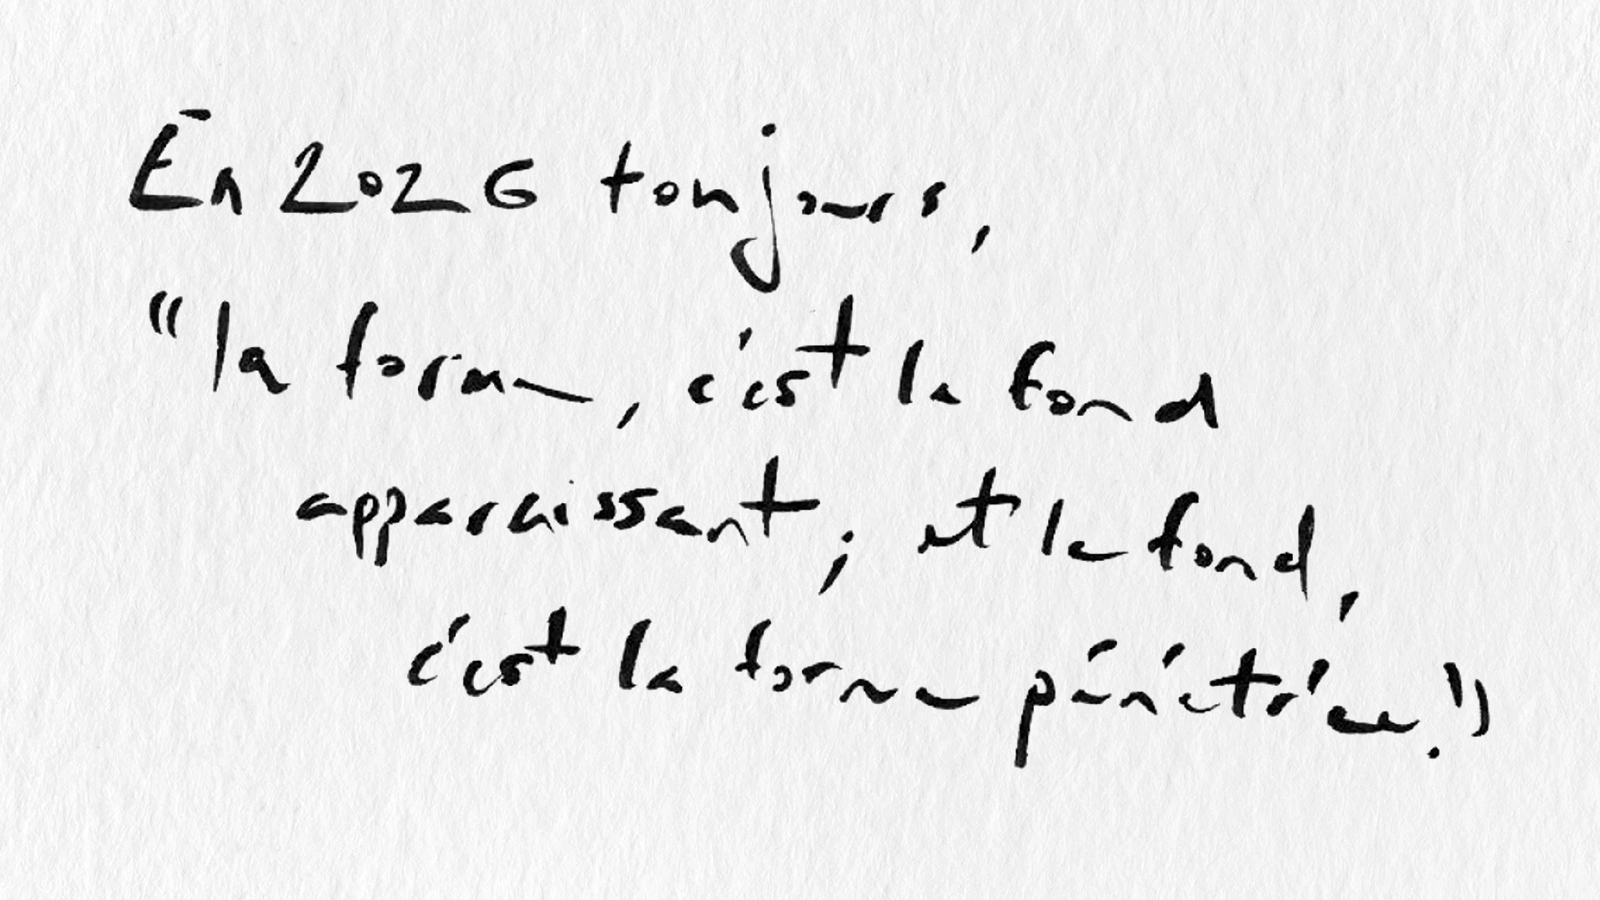 En 2026 toujours,
"la forme, c'est le fond
apparaissant; et le fond,
c'est la forme pénétrée."